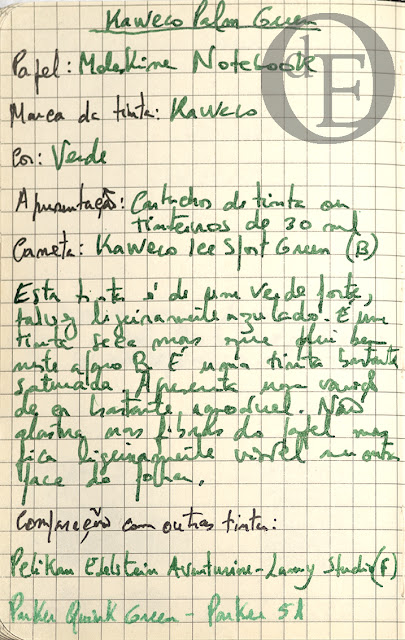 Kaweco Palm Green
OdE
Papel: Moleskine Notebook
Marca da tinta: Kaweco
Cor: Verde
Apresentação: Cartuchos de tinta ou
tinteiros de 30 ml
Caneta: Kaweco Ice Sport Green (B)
Esta tinta é de um verde forte,
talvez ligeiramente azulado. É uma
tinta seca mas que flui bem
neste aparo B. É uma tinta bastante
saturada. Apresenta uma variação
de cor bastante agradável. Não
alastra nas fibras do papel mas
fica ligeiramente visível na outra
face da folha.
Comparação com outras tintas:
Pelikan Edelstein Aventurine - Lamy Studio (F)
Parker Quink Green - Parker 51